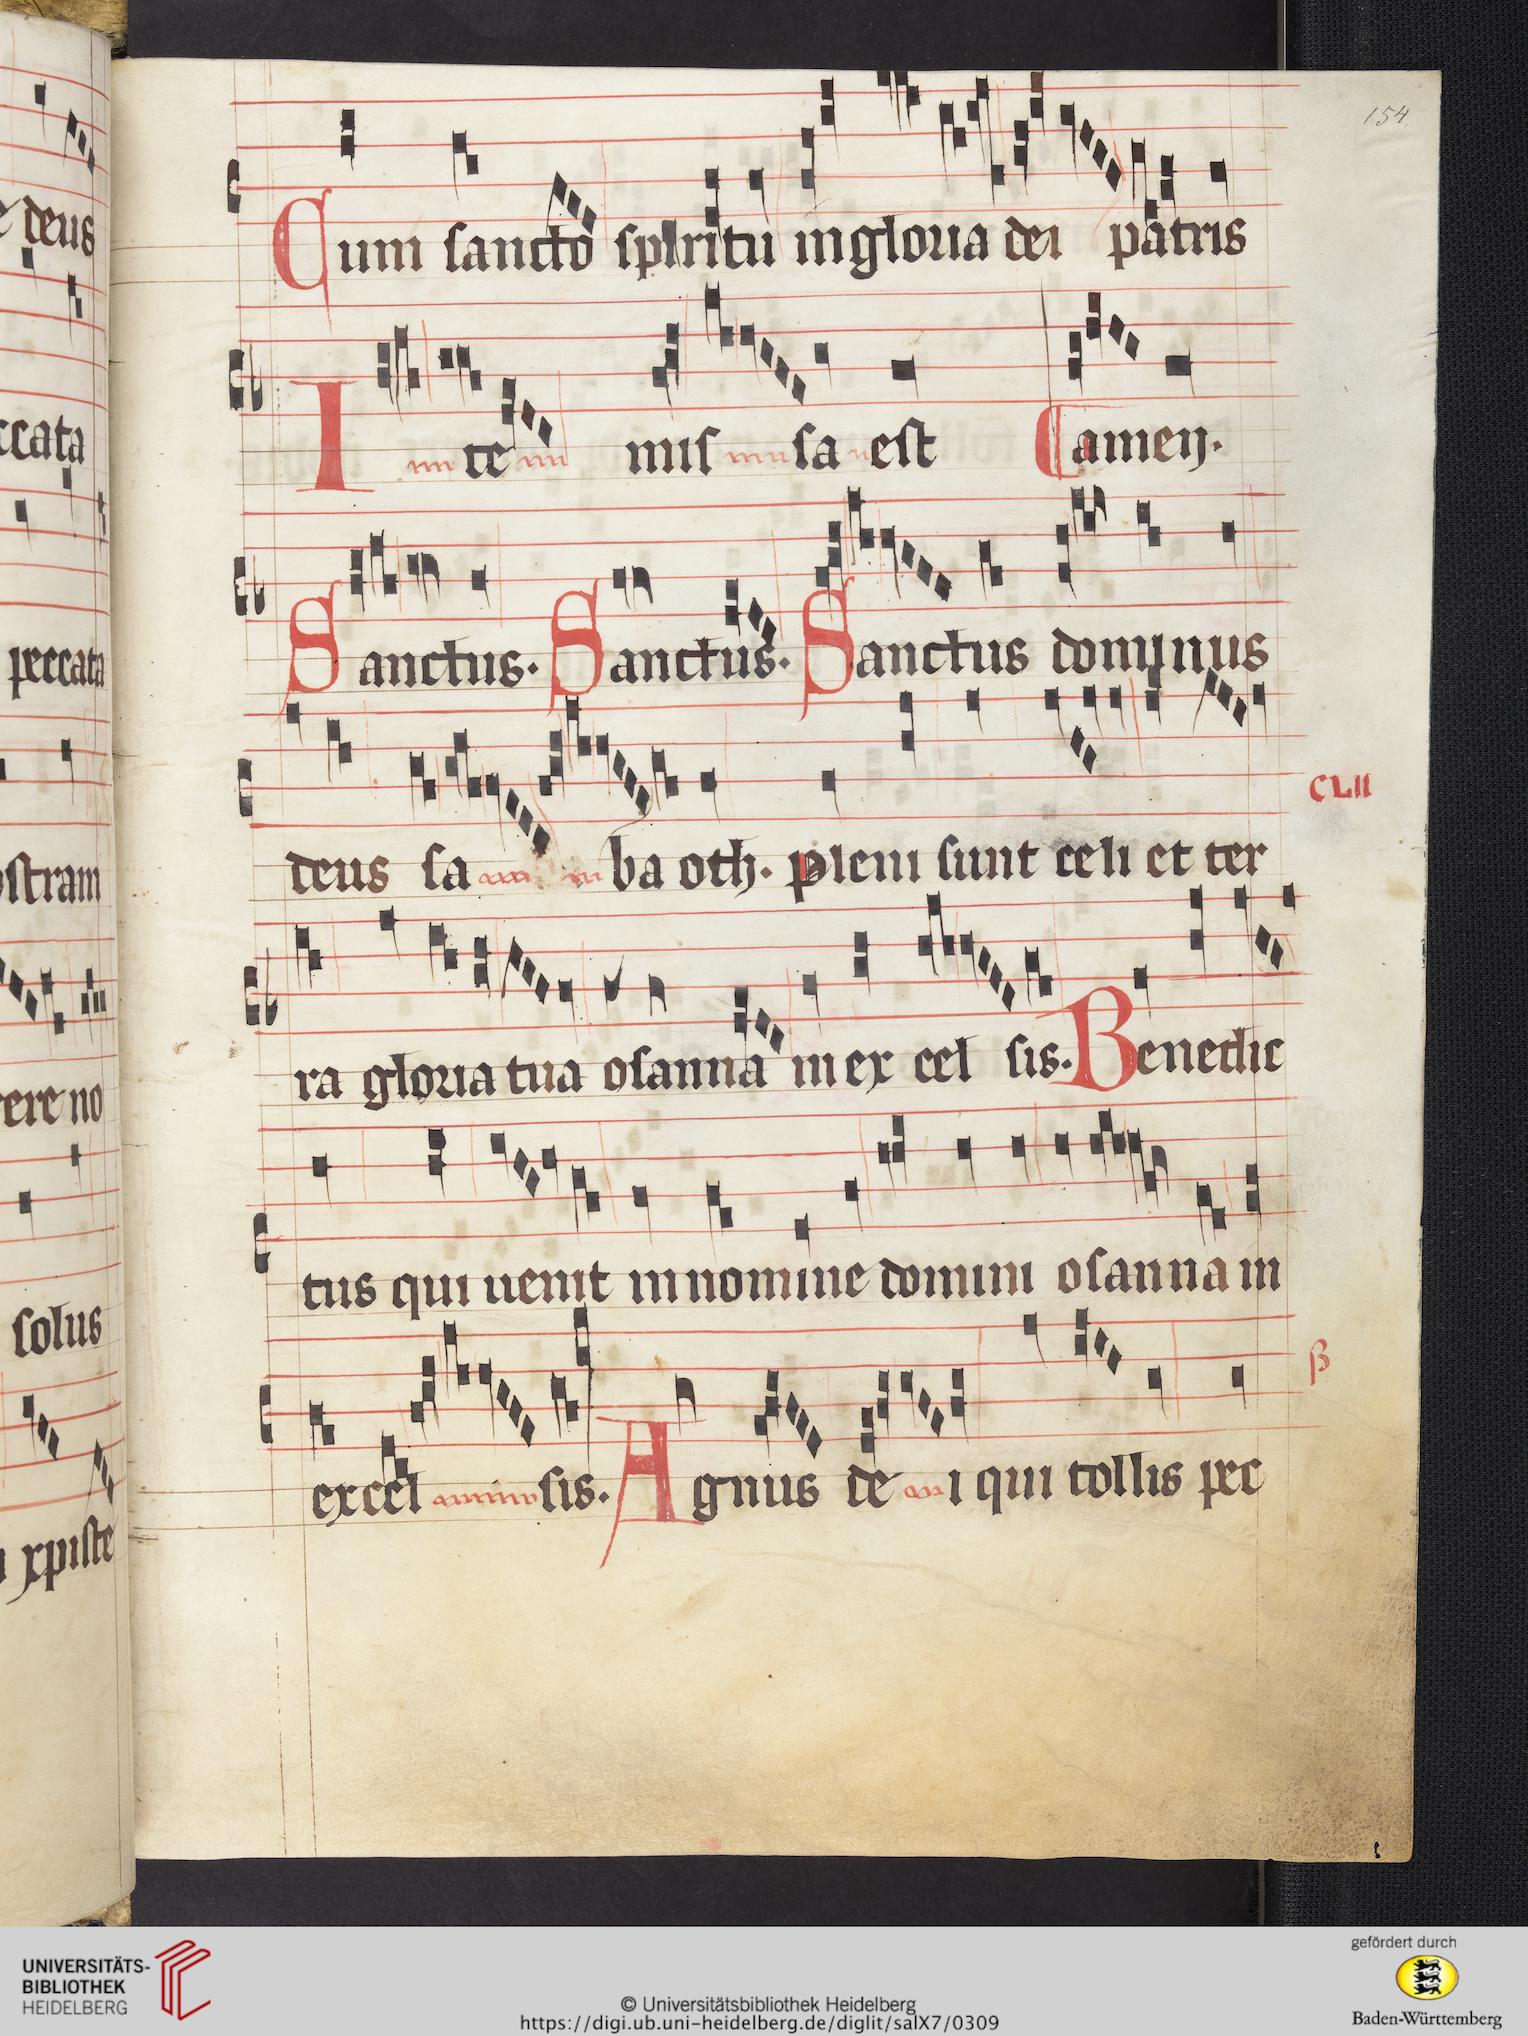 154
e deus
Cum sancto spiritu in gloria dei patris
ccata
I te mis sa est amen.
peccata
Sanctus. Sanctus. Sanctus dominus
CLII
ostram
deus sa ba oth. pleni sunt celi et ter
rere no
ra gloria tua osanna in ex cel sis. Benedic
solus
tus qui uenit in nomine domini osanna in
xpiste
excel sis. Agnus de i qui tollis pec
UNIVERSITÄTS-
BIBLIOTHEK
HEIDELBERG
© Universitätsbibliothek Heidelberg
https://digi.ub.uni-heidelberg.de/diglit/salX7/0309
gefördert durch
Baden-Württemberg